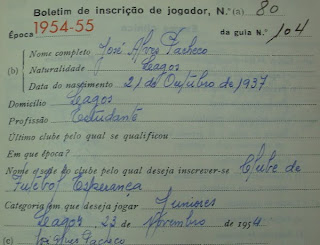 Boletim de inscrição de jogador, N.º (a) 80
Época 1954-55 da guia N.º 104
Nome completo José Alves Pacheco
(b) Naturalidade Lagos
Data do nascimento 21 de Outubro de 1937
Domicílio Lagos
Profissão Estudante
Último clube pelo qual se qualificou
Em que época?
Nome e sede do clube pelo qual deseja inscrever-se Clube de
Futebol Esperança
Categoria em que deseja jogar Juniores
Lagos 23 de Novembro de 1954
(c) José Alves Pacheco